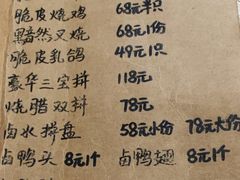 脆皮烧鸡 68元半只
黯然叉烧 68元1份
脆皮乳鸽 49元1只
豪华三宝拼 118元
烧腊双拼 78元
卤水拼盘 58元小份 78元大份
卤鸭头 8元1个 卤鸭翅 8元1个